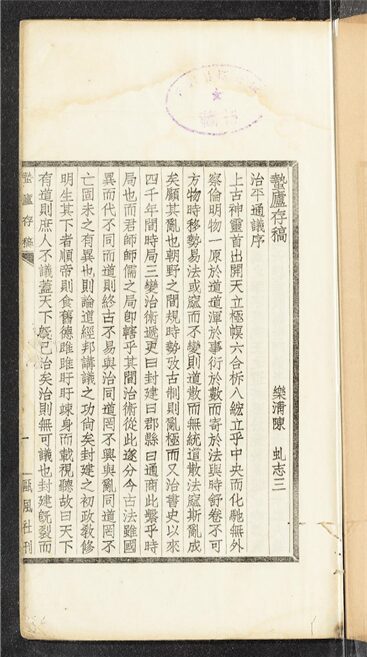 蟄廬存稿
樂清陳 虬志三
治平通議序
上古神靈首出開天立極幎六合柝八紘立乎中央而化馳無外
察倫明物一原於道道渾於事衍於數而寄於法與時舒卷不可
方物時移勢易法或窳而不變則道散而無統道散法窳斯亂成
矣顧其亂也朝野之間規時勢攷古制則亂極而又治書史以來
四千年間時局三變治術遞更曰封建曰郡縣曰通商此繫乎時
局也而君師師儒之局卽轄乎其間治術從此遂分今古法雖國
異而代不同而道則終古不易與治同道罔不興與亂同道罔不
亡固未之有異也則論道經邦講議之功尙矣封建之初政教修
明生其下者順帝則食舊德雎雎盱盱竦身而載視聽故曰天下
有道則庶人不議蓋天下旣已治矣治則無可議也封建旣裂而
蟄廬存稿
一
甌風社刊